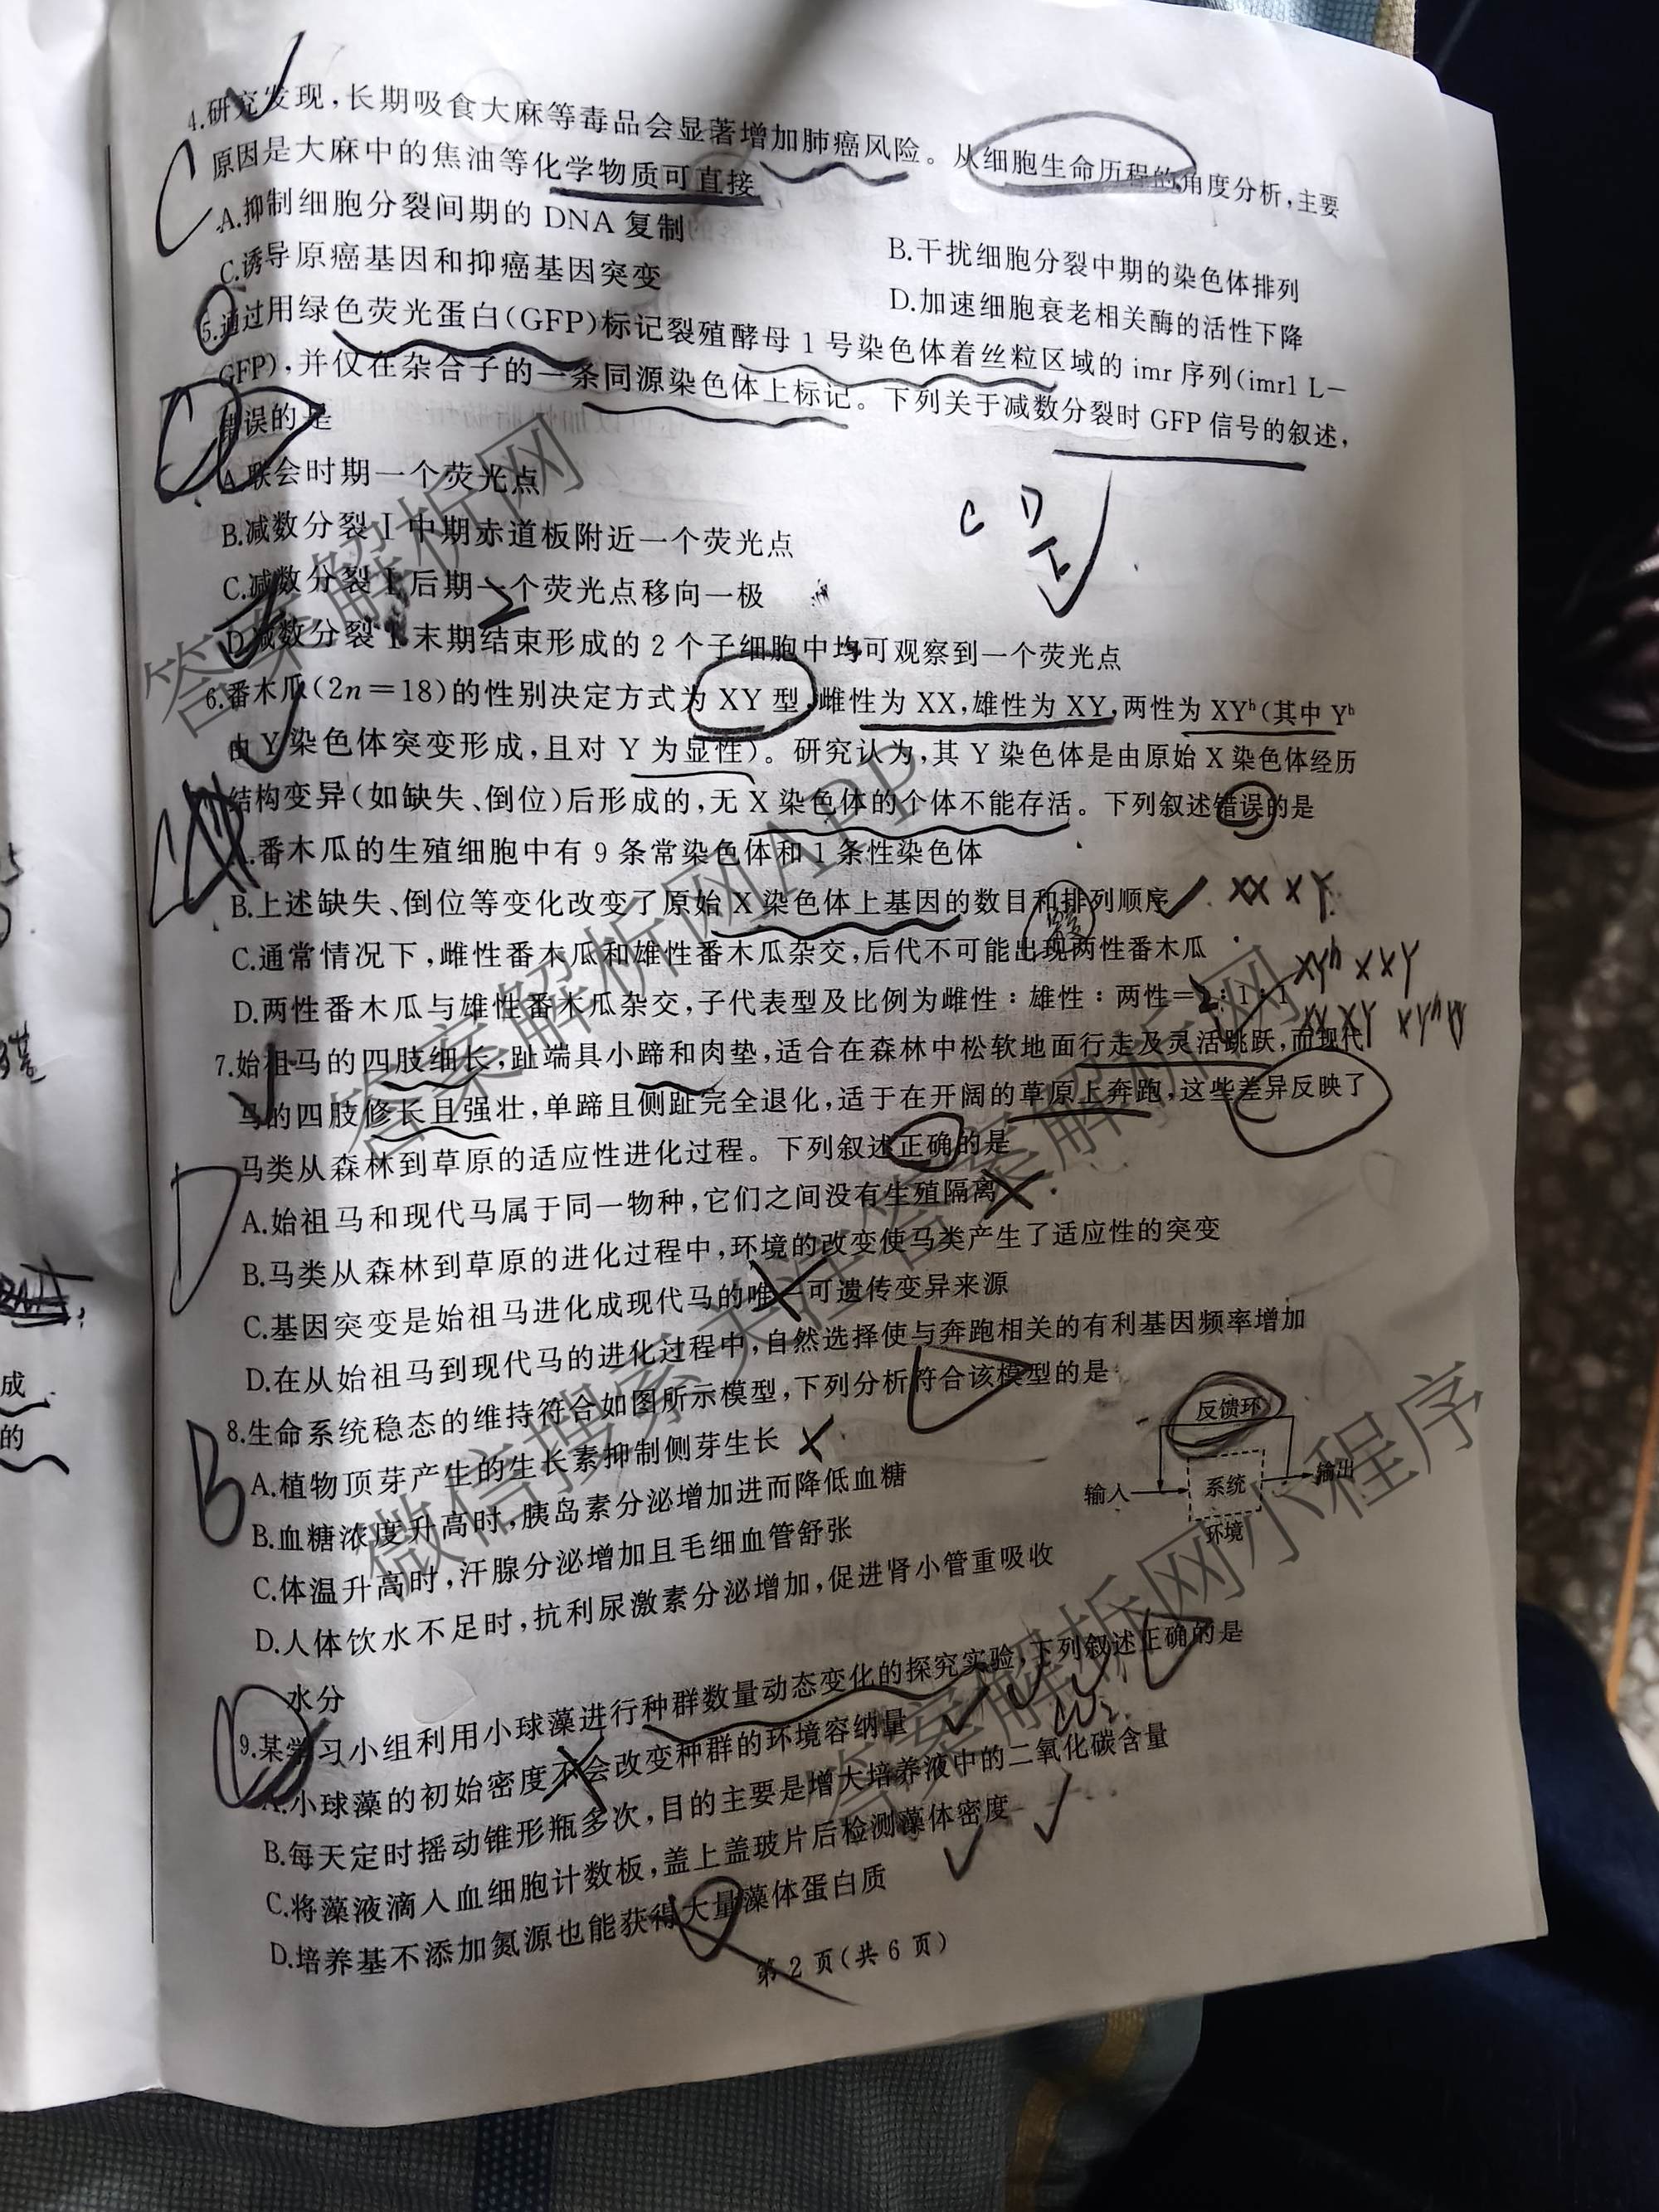 4.研究发现,长期吸食大麻等毒品会显著增加肺癌风险。从细胞生命历程的角度分析,主要
原因是大麻中的焦油等化学物质可直接
A.抑制细胞分裂间期的 DNA 复制
B.干扰细胞分裂中期的染色体排列
C.诱导原癌基因和抑癌基因突变
D.加速细胞衰老相关酶的活性下降
5.通过用绿色荧光蛋白(GFP)标记裂殖酵母 1 号染色体着丝粒区域的 imr 序列(imr1 L-
GFP),并仅在杂合子的一条同源染色体上标记。下列关于减数分裂时 GFP 信号的叙述,
错误的是
A.联会时期一个荧光点
B.减数分裂Ⅰ中期赤道板附近一个荧光点
C.减数分裂Ⅰ后期一个荧光点移向一极
D.减数分裂Ⅰ末期结束形成的 2 个子细胞中均可观察到一个荧光点
C D
6.番木瓜(2n=18)的性别决定方式为 XY 型,雌性为 XX,雄性为 XY,两性为 XYʰ(其中 Yʰ
由 Y 染色体突变形成,且对 Y 为显性)。研究认为,其 Y 染色体是由原始 X 染色体经历
结构变异(如缺失、倒位)后形成的,无 X 染色体的个体不能存活。下列叙述错误的是
A.番木瓜的生殖细胞中有 9 条常染色体和 1 条性染色体
B.上述缺失、倒位等变化改变了原始 X 染色体上基因的数目和排列顺序
XX XY
C.通常情况下,雌性番木瓜和雄性番木瓜杂交,后代不可能出现两性番木瓜
XYʰ × XY
D.两性番木瓜与雄性番木瓜杂交,子代表型及比例为雌性:雄性:两性=2:1:1
XX XY XYʰ
7.始祖马的四肢细长,趾端具小蹄和肉垫,适合在森林中松软地面行走及灵活跳跃,而现代
马的四肢修长且强壮,单蹄且侧趾完全退化,适于在开阔的草原上奔跑,这些差异反映了
马类从森林到草原的适应性进化过程。下列叙述正确的是
D
A.始祖马和现代马属于同一物种,它们之间没有生殖隔离
B.马类从森林到草原的进化过程中,环境的改变使马类产生了适应性的突变
C.基因突变是始祖马进化成现代马的唯一可遗传变异来源
D.在从始祖马到现代马的进化过程中,自然选择使与奔跑相关的有利基因频率增加
8.生命系统稳态的维持符合如图所示模型,下列分析符合该模型的是
B
A.植物顶芽产生的生长素抑制侧芽生长
B.血糖浓度升高时,胰岛素分泌增加进而降低血糖
C.体温升高时,汗腺分泌增加且毛细血管舒张
D.人体饮水不足时,抗利尿激素分泌增加,促进肾小管重吸收
水分
反馈环
输入
系统
输出
环境
9.某学习小组利用小球藻进行种群数量动态变化的探究实验,下列叙述正确的是
A.小球藻的初始密度不会改变种群的环境容纳量
B.每天定时摇动锥形瓶多次,目的主要是增大培养液中的二氧化碳含量
C.将藻液滴入血细胞计数板,盖上盖玻片后检测藻体密度
D.培养基不添加氮源也能获得大量藻体蛋白质
第 2 页(共 6 页)
成
的
答案解析网
答案解析网APP
微信搜索关注答案解析网
答案解析网小程序